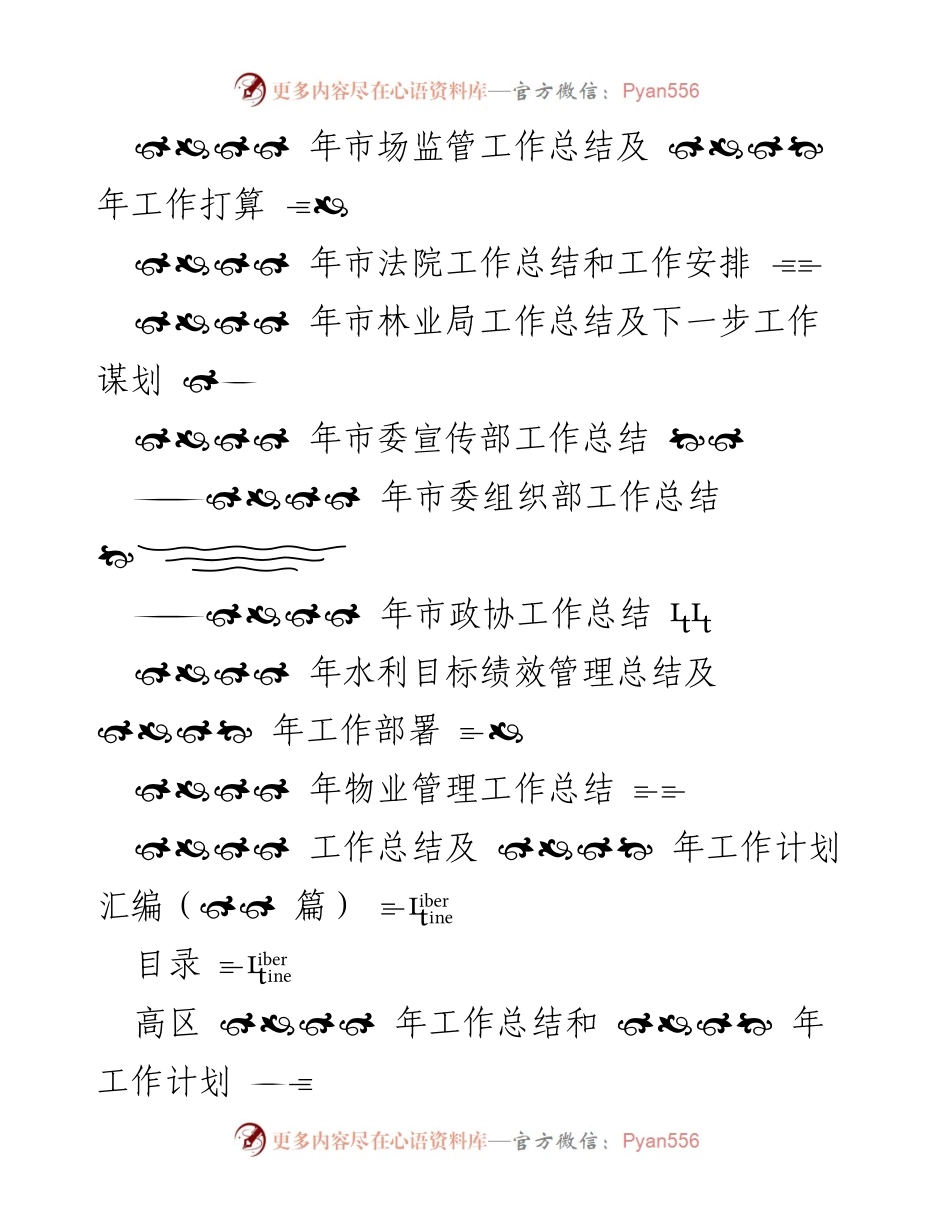 更多内容尽在心语资料库—官方微信：Pyan556
年市场监管工作总结及
年工作打算
年市法院工作总结和工作安排
年市林业局工作总结及下一步工作
谋划
年市委宣传部工作总结
年市委组织部工作总结
年市政协工作总结
年水利目标绩效管理总结及
年工作部署
年物业管理工作总结
工作总结及 年工作计划
汇编（ 篇）
目录
高区 年工作总结和 年
工作计划
更多内容尽在心语资料库—官方微信：Pyan556